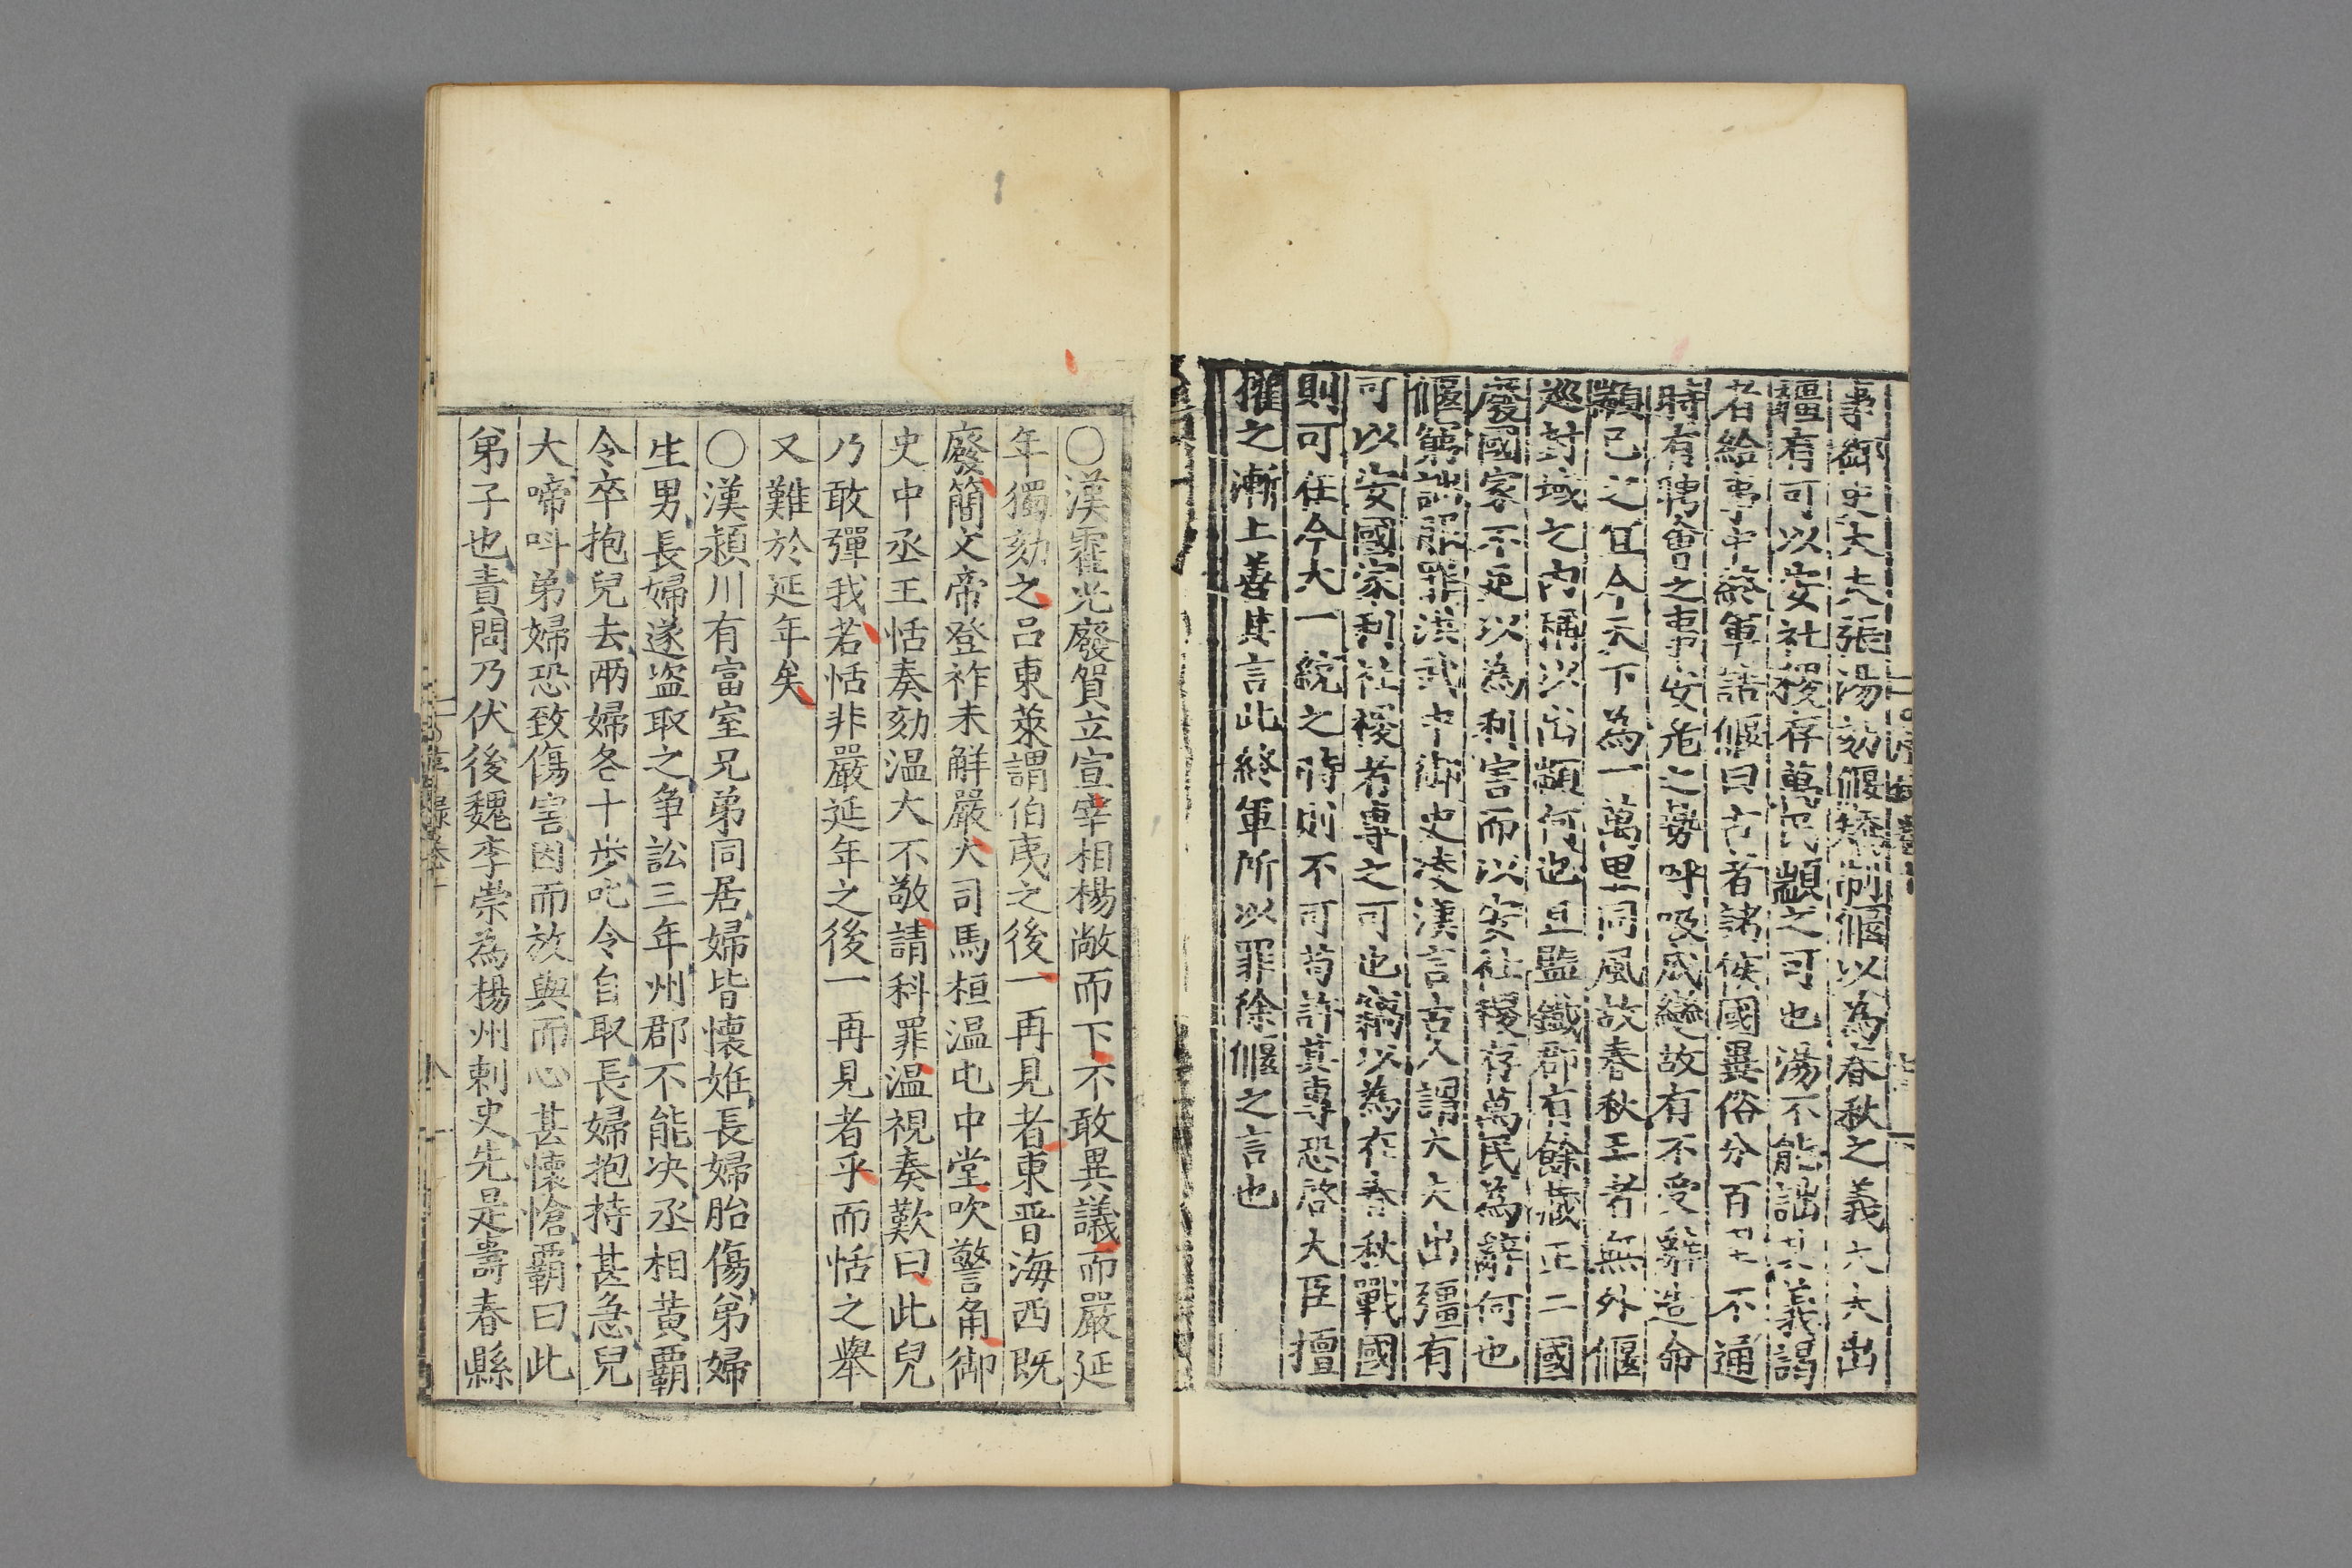 事御史大夫張湯劾偃矯制偃以為春秋之義大夫出
疆有可以安社稷存萬民顓之可也湯不能詘其義謁
者給事中終軍詰偃曰古者諸侯國異俗分百里不通
時有聘會之事安危之勢呼吸成變故有不受辭造命
顓己之宜今天下為一萬里同風故春秋王者無外偃
巡封域之內稱以出顓何也且鹽鐵郡有餘藏正二國
廢國家不足以為利害而以安社稷存萬民為辭何也
偃窮詘服罪漢武中御史凌漢言古人謂大夫出疆有
可以安國家利社稷者專之可也竊以為在春秋戰國
則可在今大一統之時則不可苟許其專恐啓大臣擅
權之漸上善其言此終軍所以罪徐偃之言也
〇漢霍光廢賀立宣宰相楊敞而下不敢異議而嚴延
年獨劾之呂東萊謂伯夷之後一再見者東晋海西既
廢簡文帝登祚未解嚴大司馬桓温屯中堂吹警角御
史中丞王恬奏劾温大不敬請科罪温視奏歎曰此兒
乃敢彈我若恬非嚴延年之後一再見者乎而恬之舉
又難於延年矣
〇漢潁川有富室兄弟同居婦皆懷姙長婦胎傷弟婦
生男長婦遂盗取之争訟三年州郡不能决丞相黄覇
令卒抱兒去兩婦各十步叱令自取長婦抱持甚急兒
大啼呌弟婦恐致傷害因而放與而心甚懷愴覇曰此
弟子也責問乃伏後魏李崇為揚州刺史先是壽春縣